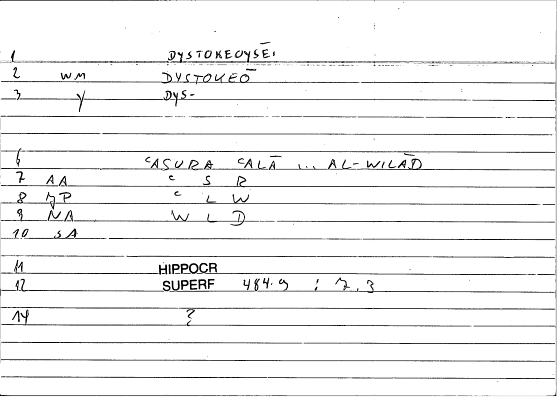 1 DYSTOKEOYSĒ.
2 WM DYSTOKEŌ
3 Y DYS-
6 ᶜASURA ᶜALĀ ... AL-WILĀD
7 AA ᶜ S R
8 ᶜ L W
9 NA W L D
10 SA
11 HIPPOCR
12 SUPERF 484.9 : 7.3
14 ?